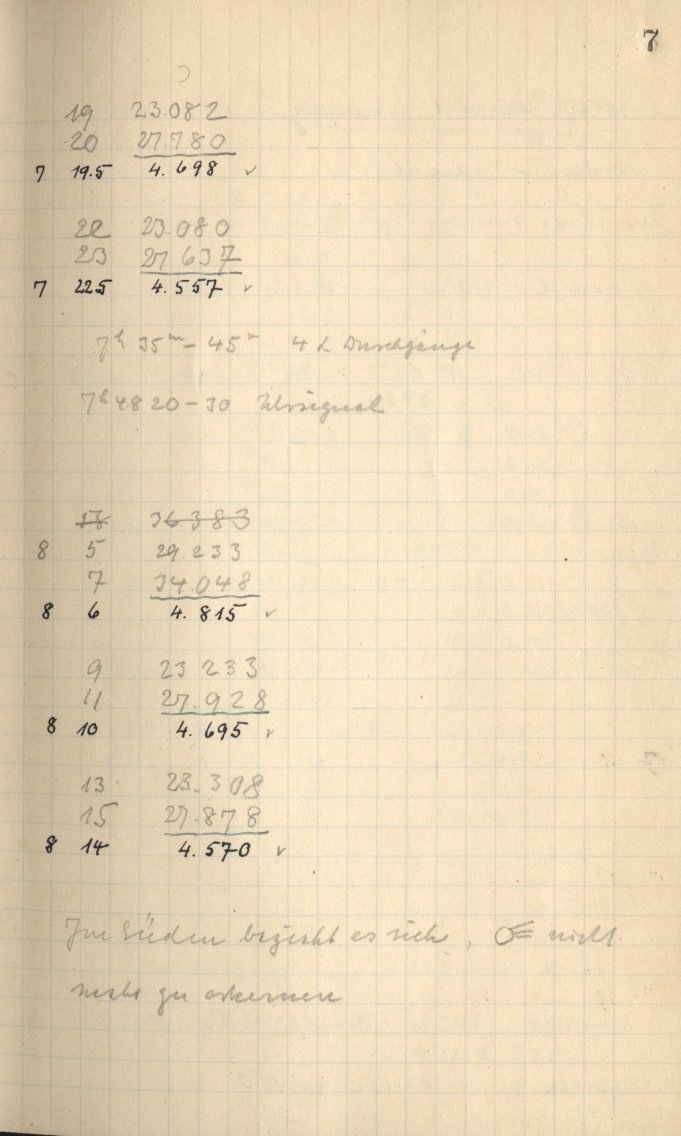 7
19 23.082
20 27.780
7 19.5 4.698 ✓
22 23.080
23 27 637
7 22.5 4.557 ✓
7h 35m - 45m 4 Durchgänge
7h 48 20-30 Uhrsignal
36383
8 5 29.233
7 34.048
8 6 4.815 ✓
9 23 233
11 27.928
8 10 4.695 ✓
13 23.308
15 27.878
8 14 4.570 ✓
Im Süden bezieht es sich, nicht
mehr zu erkennen